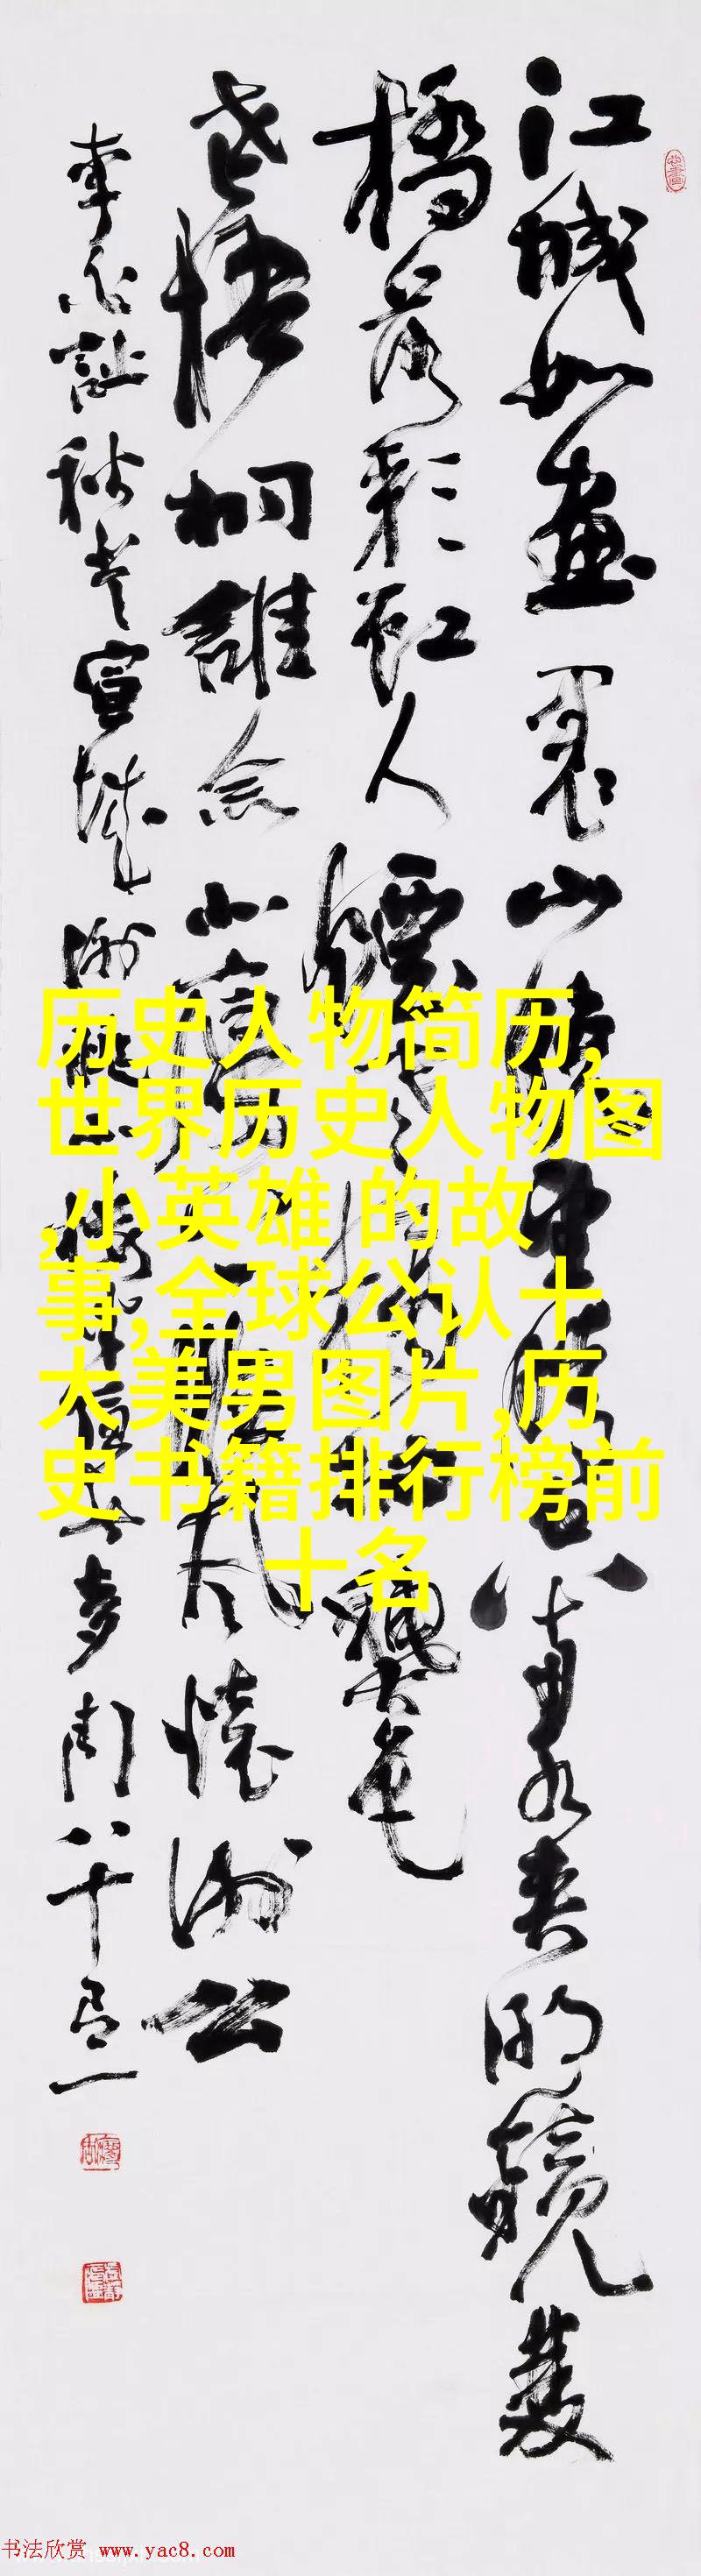 江城如畫裏山曉望晴空兩水夾明鏡雙
橋落彩虹人煙寒橘柚秋色
老梧桐誰念北樓上臨風懷謝公
李白詩秋登宣城謝朓北樓
历史人物简历,
世界历史人物图
,小英雄 的故
事,全球公认十
大美男图片,历
史书籍排行榜前
十名
书法欣赏 www.yac8.com